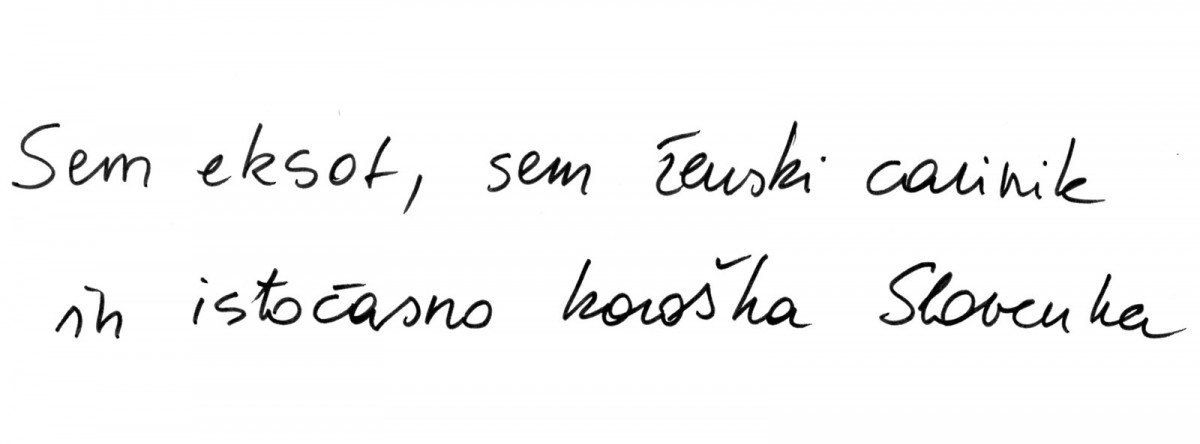 Sem eksot, sem ženski carinik
in istočasno koroška Slovenka